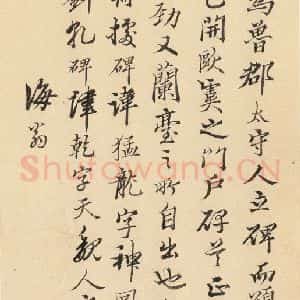 為魯郡太守人立碑而頌
已開歐虞之門戶碑正
勁又蘭臺之所自出也
據碑諱猛龍字神
孔碑乾字天魏人
海翁
Shufawang.CN